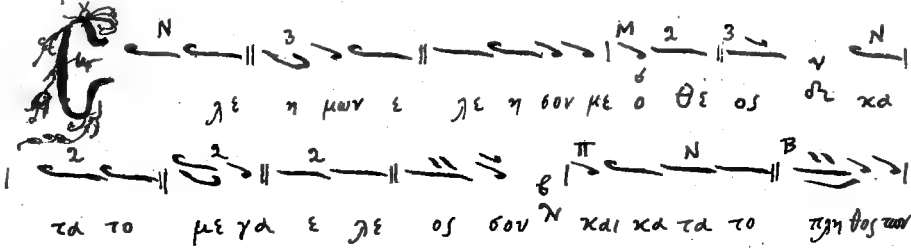 Ελεημων ελεησον με ο Θεος κα
τα το μεγα ελεος σου και κατα το πληθος των